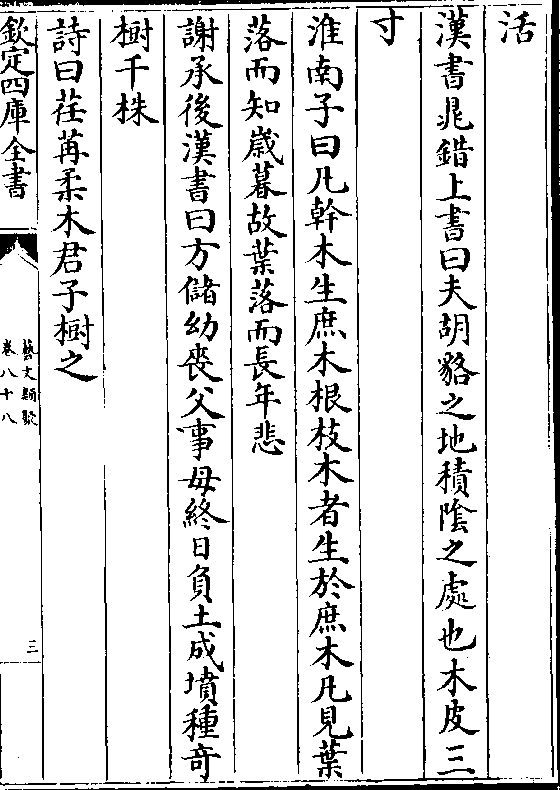 活
漢書晁錯上書曰夫胡貉之地積隂之處也木皮三
寸
淮南子曰凡幹木生庶木根枝木者生於庶木凡見葉
落而知嵗暮故葉落而長年悲
謝承後漢書曰方儲幼喪父事母終日負土成墳種竒
樹千株
詩曰荏苒柔木君子樹之
欽定四庫全書
藝文類聚
卷八十八
三